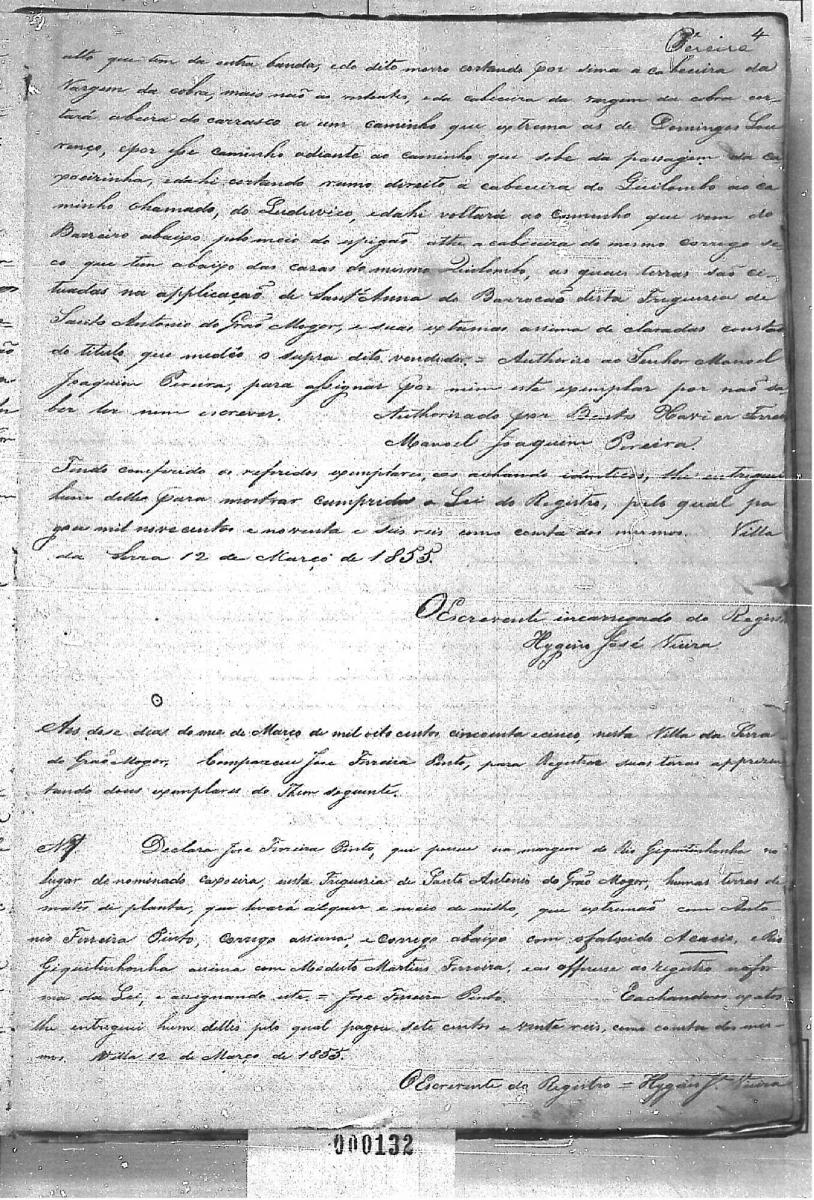 4
Pereira
alto que tem da outra banda, e do dito morro cortando por sima a cabeceira da
Vargem da cobra, mais não as vertentes, e da cabeceira da vargem da cobra cor-
tará abeira do carrasco a um caminho que extrema as de Domingos Lou
renço, e por sse caminho adiante ao caminho que sobe da passagem da ca
poeirinha, e dahi cortando rumo direito á cabeceira do Quilombo ao ca
minho chamado, do Luduvico, e dahi voltará ao caminho que vem do
Barreiro abaixo pelo meio do espigão athe a cabiceira do mesmo corrego se-
co que tem abaixo das cazas do mesmo Quilombo, as quaes terras são ci-
tuadas na applicação de Sant'Anna do Barrocão desta Freguezia de
Santo Antonio do Grão Mogor, e suas extremas assima de claradas consta
do titulo que me deo o supra dito vendedor = Authoriso ao Senhor Manoel
Joaquim Pereira, para assignar por mim este exemplar por não sa-
ber ler nem escrever. Authorizado por Bento Xavier Ferrei
Manoel Joaquim Pereira.
Tendo conferido os referidos exemplares, e os achando identicos, lhe entreguei
hum delles para mostrar cumprido a Lei do Registro, pelo qual pa
gou mil nove centos e noventa e seis reis como consta dos mesmos. Villa
da Serra 12 de Março de 1855.
O Escrevente incarregado do Regist
Hygino José Vieira
Aos dose dias do mez de Março de mil oito centos cincoenta e cinco, nesta Villa da Serra
do Grão Mogor, Compareceu Jose Ferreira Pinto, para Registrar suas terras apprezen
tando dous exemplares do Theor seguinte.
Nº Declara Jose Ferreira Pinto, que possue na margem do Rio Giquitinhonha no
lugar de nominado capoeira, nesta Freguezia de Santo Antonio do Grão Mogor, humas terras de
matos de planta, que levará alquer e meio de milho, que extremão com Anto
nio Ferreira Pinto, corrego assima, e corrego abaixo com o falescido Acacio, e Rio
Giquitinhonha assima com Modesto Martins Ferreira, e as offresse ao registro na for
ma da Lei, e assignando este = Jose Ferreira Pinto. E achando os exatos
lhe entreguei hum delles pelo qual pagou sete centos e vinte reis, como consta dos mes-
mos. Villa 12 de Março de 1855.
O Escrevente do Registro = Hygino Jé Vieira
000132